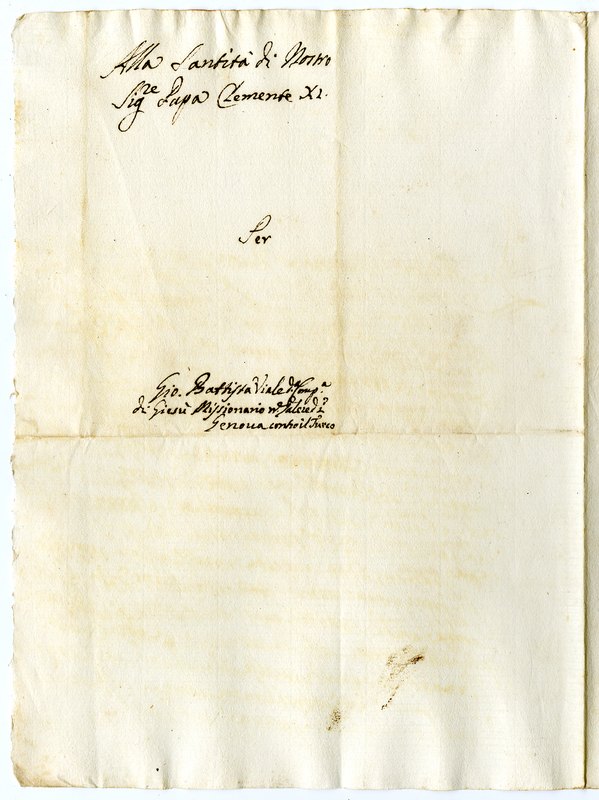 Alla Santità di Nostro
Sig.re Papa Clemente XI.
Per
Gio. Battista Viale d. Comp.a
di Giesù Missionario
Genova contro il Turco